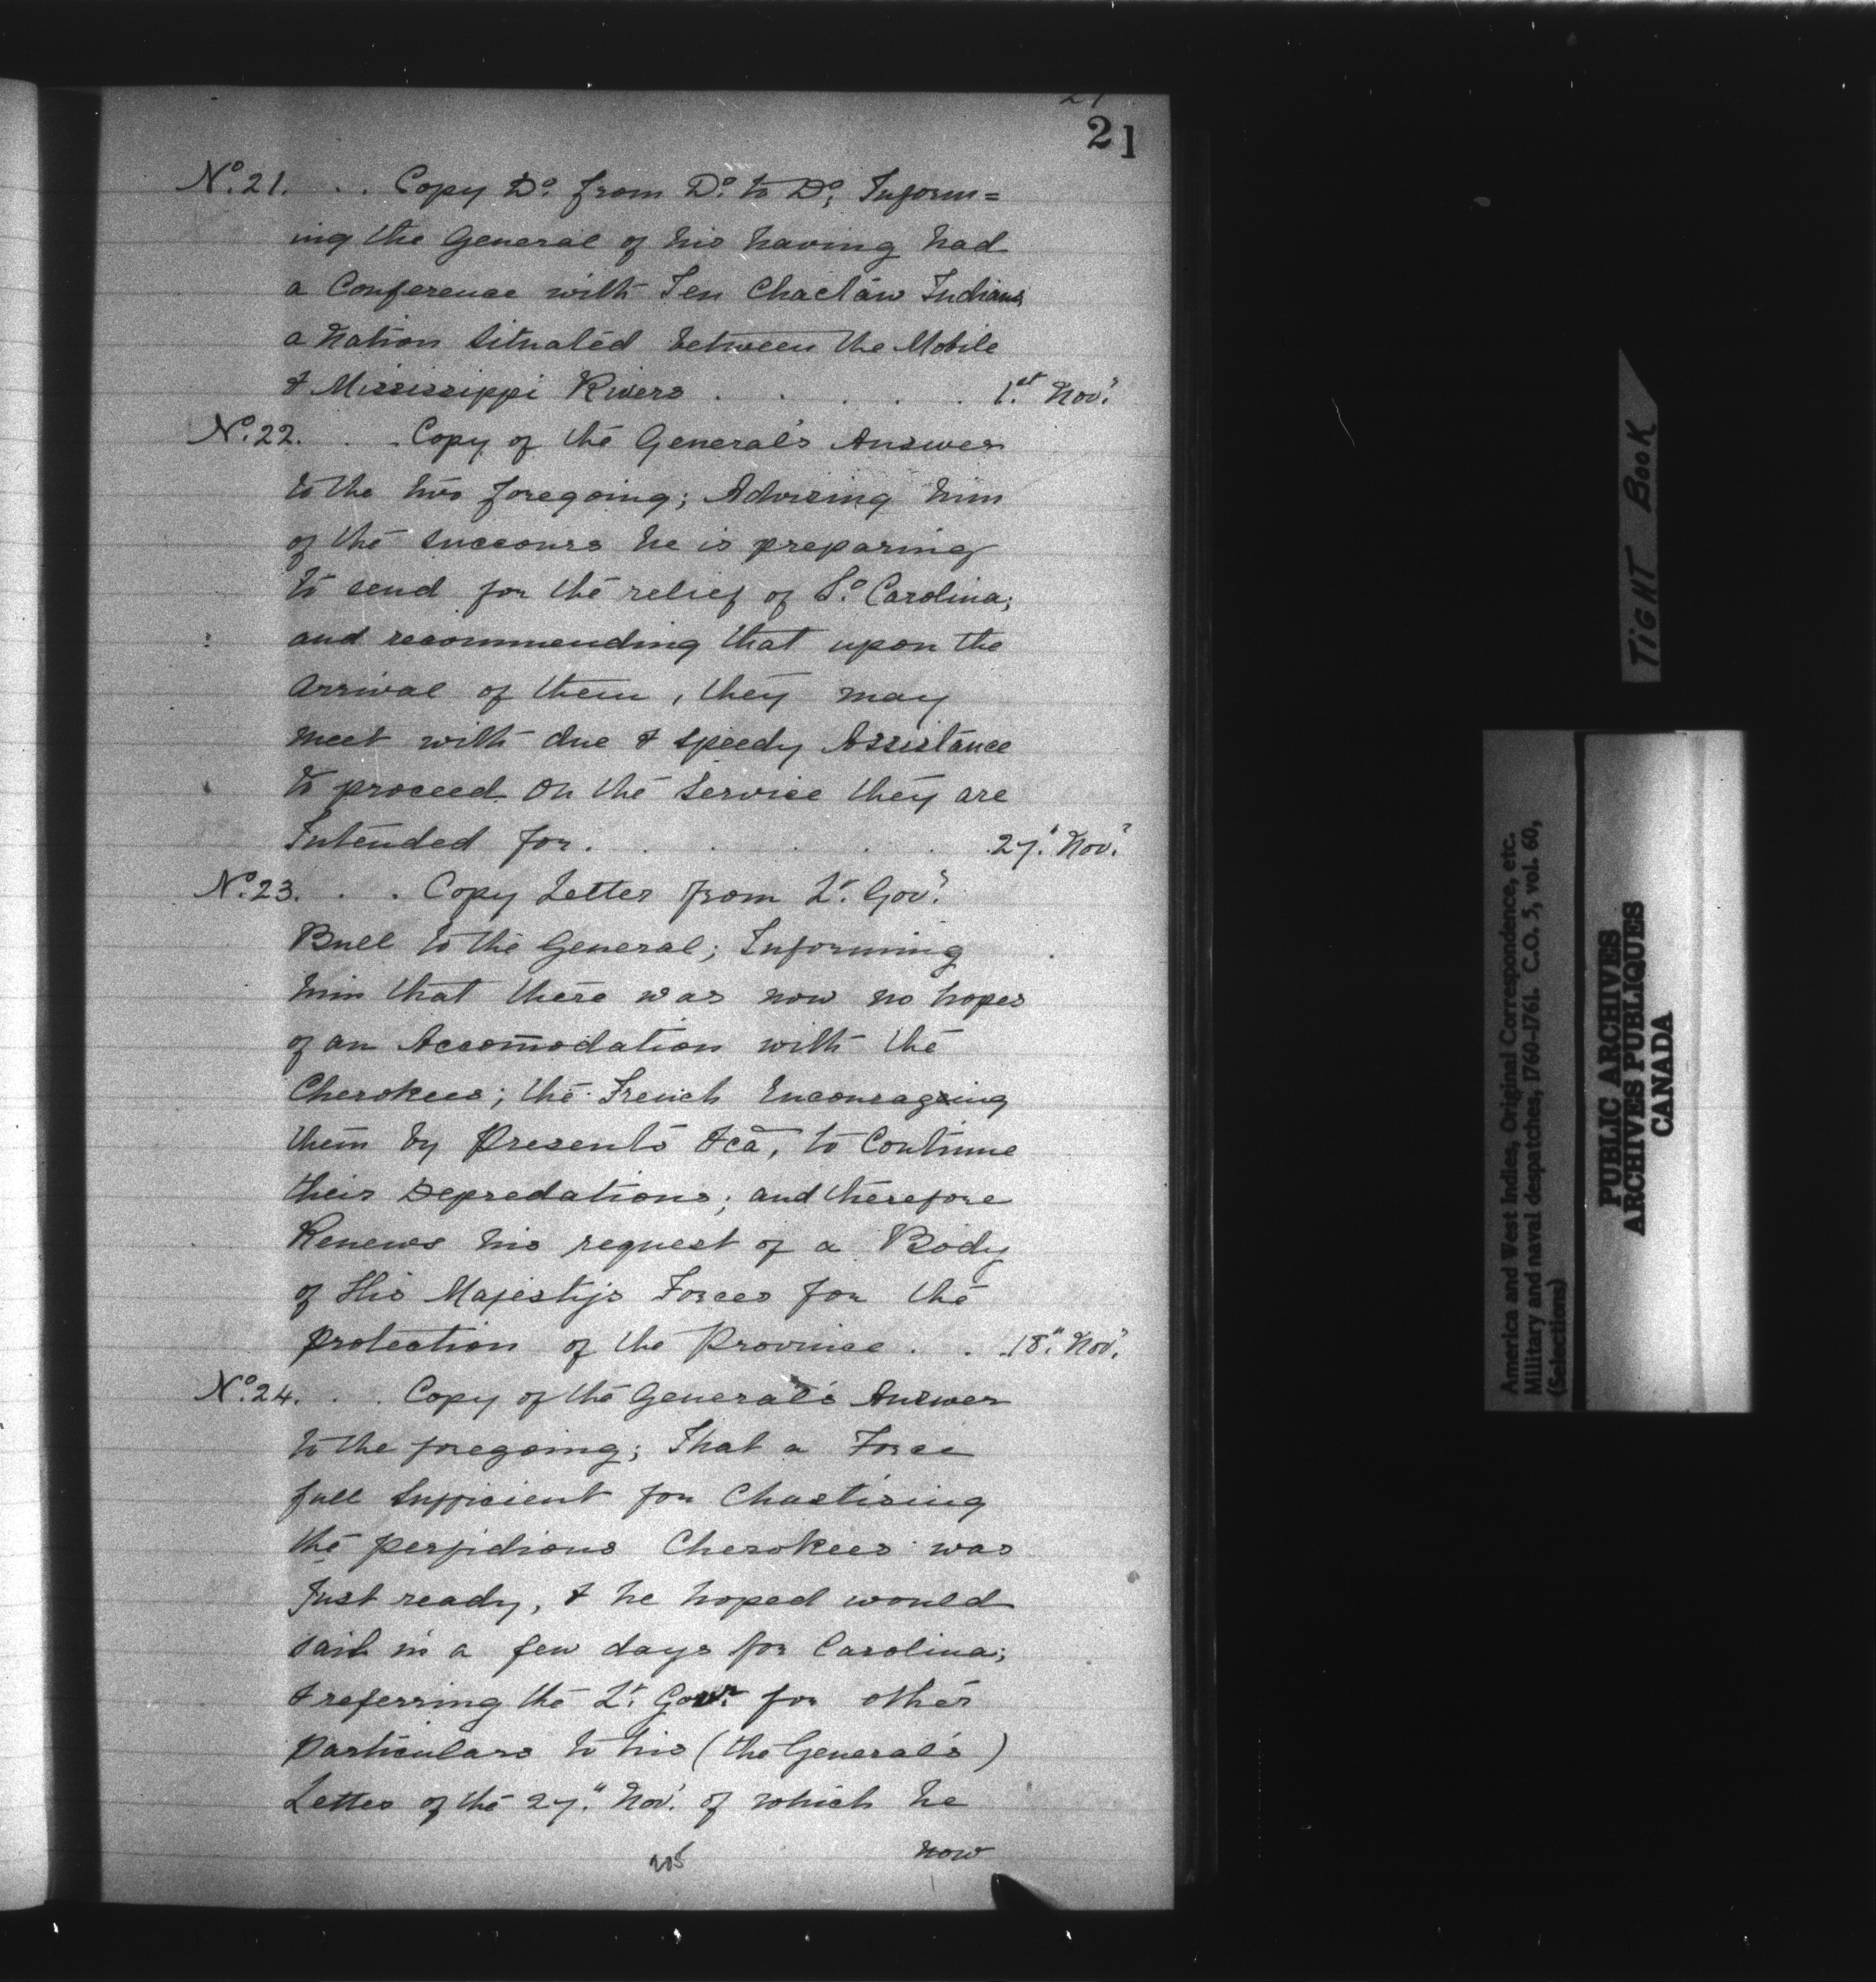 21
21
No. 21. . . Copy Do. from Do. to Do; Inform=
ing the General of his having had
a Conference with Ten Chactaw Indians
a Nation Situated between the Mobile
& Mississippi Rivers . . . . . 1st. Nov.r
No. 22. . . Copy of the General's Answer
to the two foregoing; Advising him
of the Succours he is preparing
to send for the relief of So. Carolina;
and recommending that upon the
Arrival of them, they may
meet with due & speedy Assistance
to proceed on the Service they are
Intended for. . . . . . 27." Nov.r
No. 23. . . Copy Letter from Lt. Gov.r
Bull to the General; Informing
him that there was now no hopes
of an Accomodation with the
Cherokees; the French Encouraging
them by Presents &ca, to Continue
their Depredations; and therefore
Renews his request of a Body
of His Majesty's Forces for the
Protection of the Province . . 18." Nov.r
No. 24. . . Copy of the General's Answer
to the foregoing; That a Force
full Sufficient for Chastising
the perfidious Cherokees was
Just ready, & he hoped would
sail in a few days for Carolina;
& referring the Lt. Govr. for other
Particulars to his (the General's)
Letter of the 27." Nov.r of which he
now
205
TIGHT BOOK
America and West Indies, Original Correspondence, etc.
Military and naval despatches, 1760-1761. C.O. 5, vol. 60,
(Selections)
PUBLIC ARCHIVES
ARCHIVES PUBLIQUES
CANADA